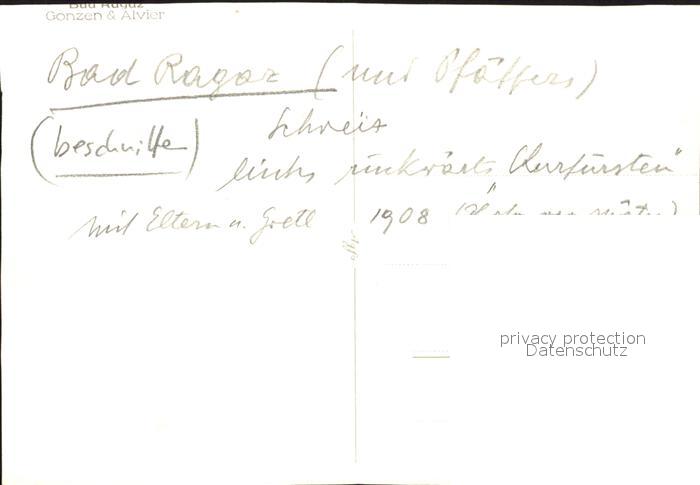 Bad Ragaz
Gonzen & Alvier
Bad Ragaz (und Pfäffers)
(beschnitten) Schweiz
links rückwärts „Kurfürsten"
mit Eltern u. Gretl 1908
privacy protection
Datenschutz